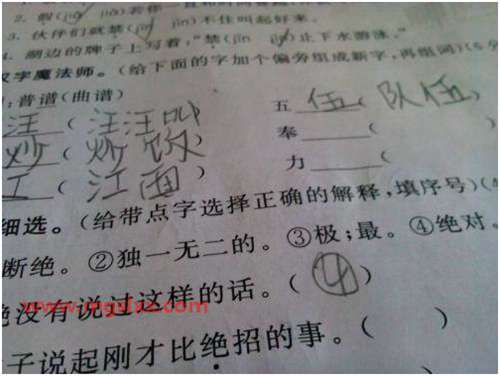 2. 假(jiǎ jià)若你一直和时间
3. 伙伴们就禁(jīn jìn)不住叫起好来。
4. 湖边的牌子上写着，"禁(jīn jìn)止下水游泳。"
汉字魔法师。(给下面的字加个偏旁组成新字，再组词)(6分
:普 谱(曲谱)
五 伍(队伍)
汪(汪汪叫
奉 (
炒(炒饭
力 (
工(江面)
细选。(给带点字选择正确的解释，填序号)(4
断绝。②独一无二的。③极；最。④绝对。
绝没有说过这样的话。(④)
子说起刚才比绝招的事。( )